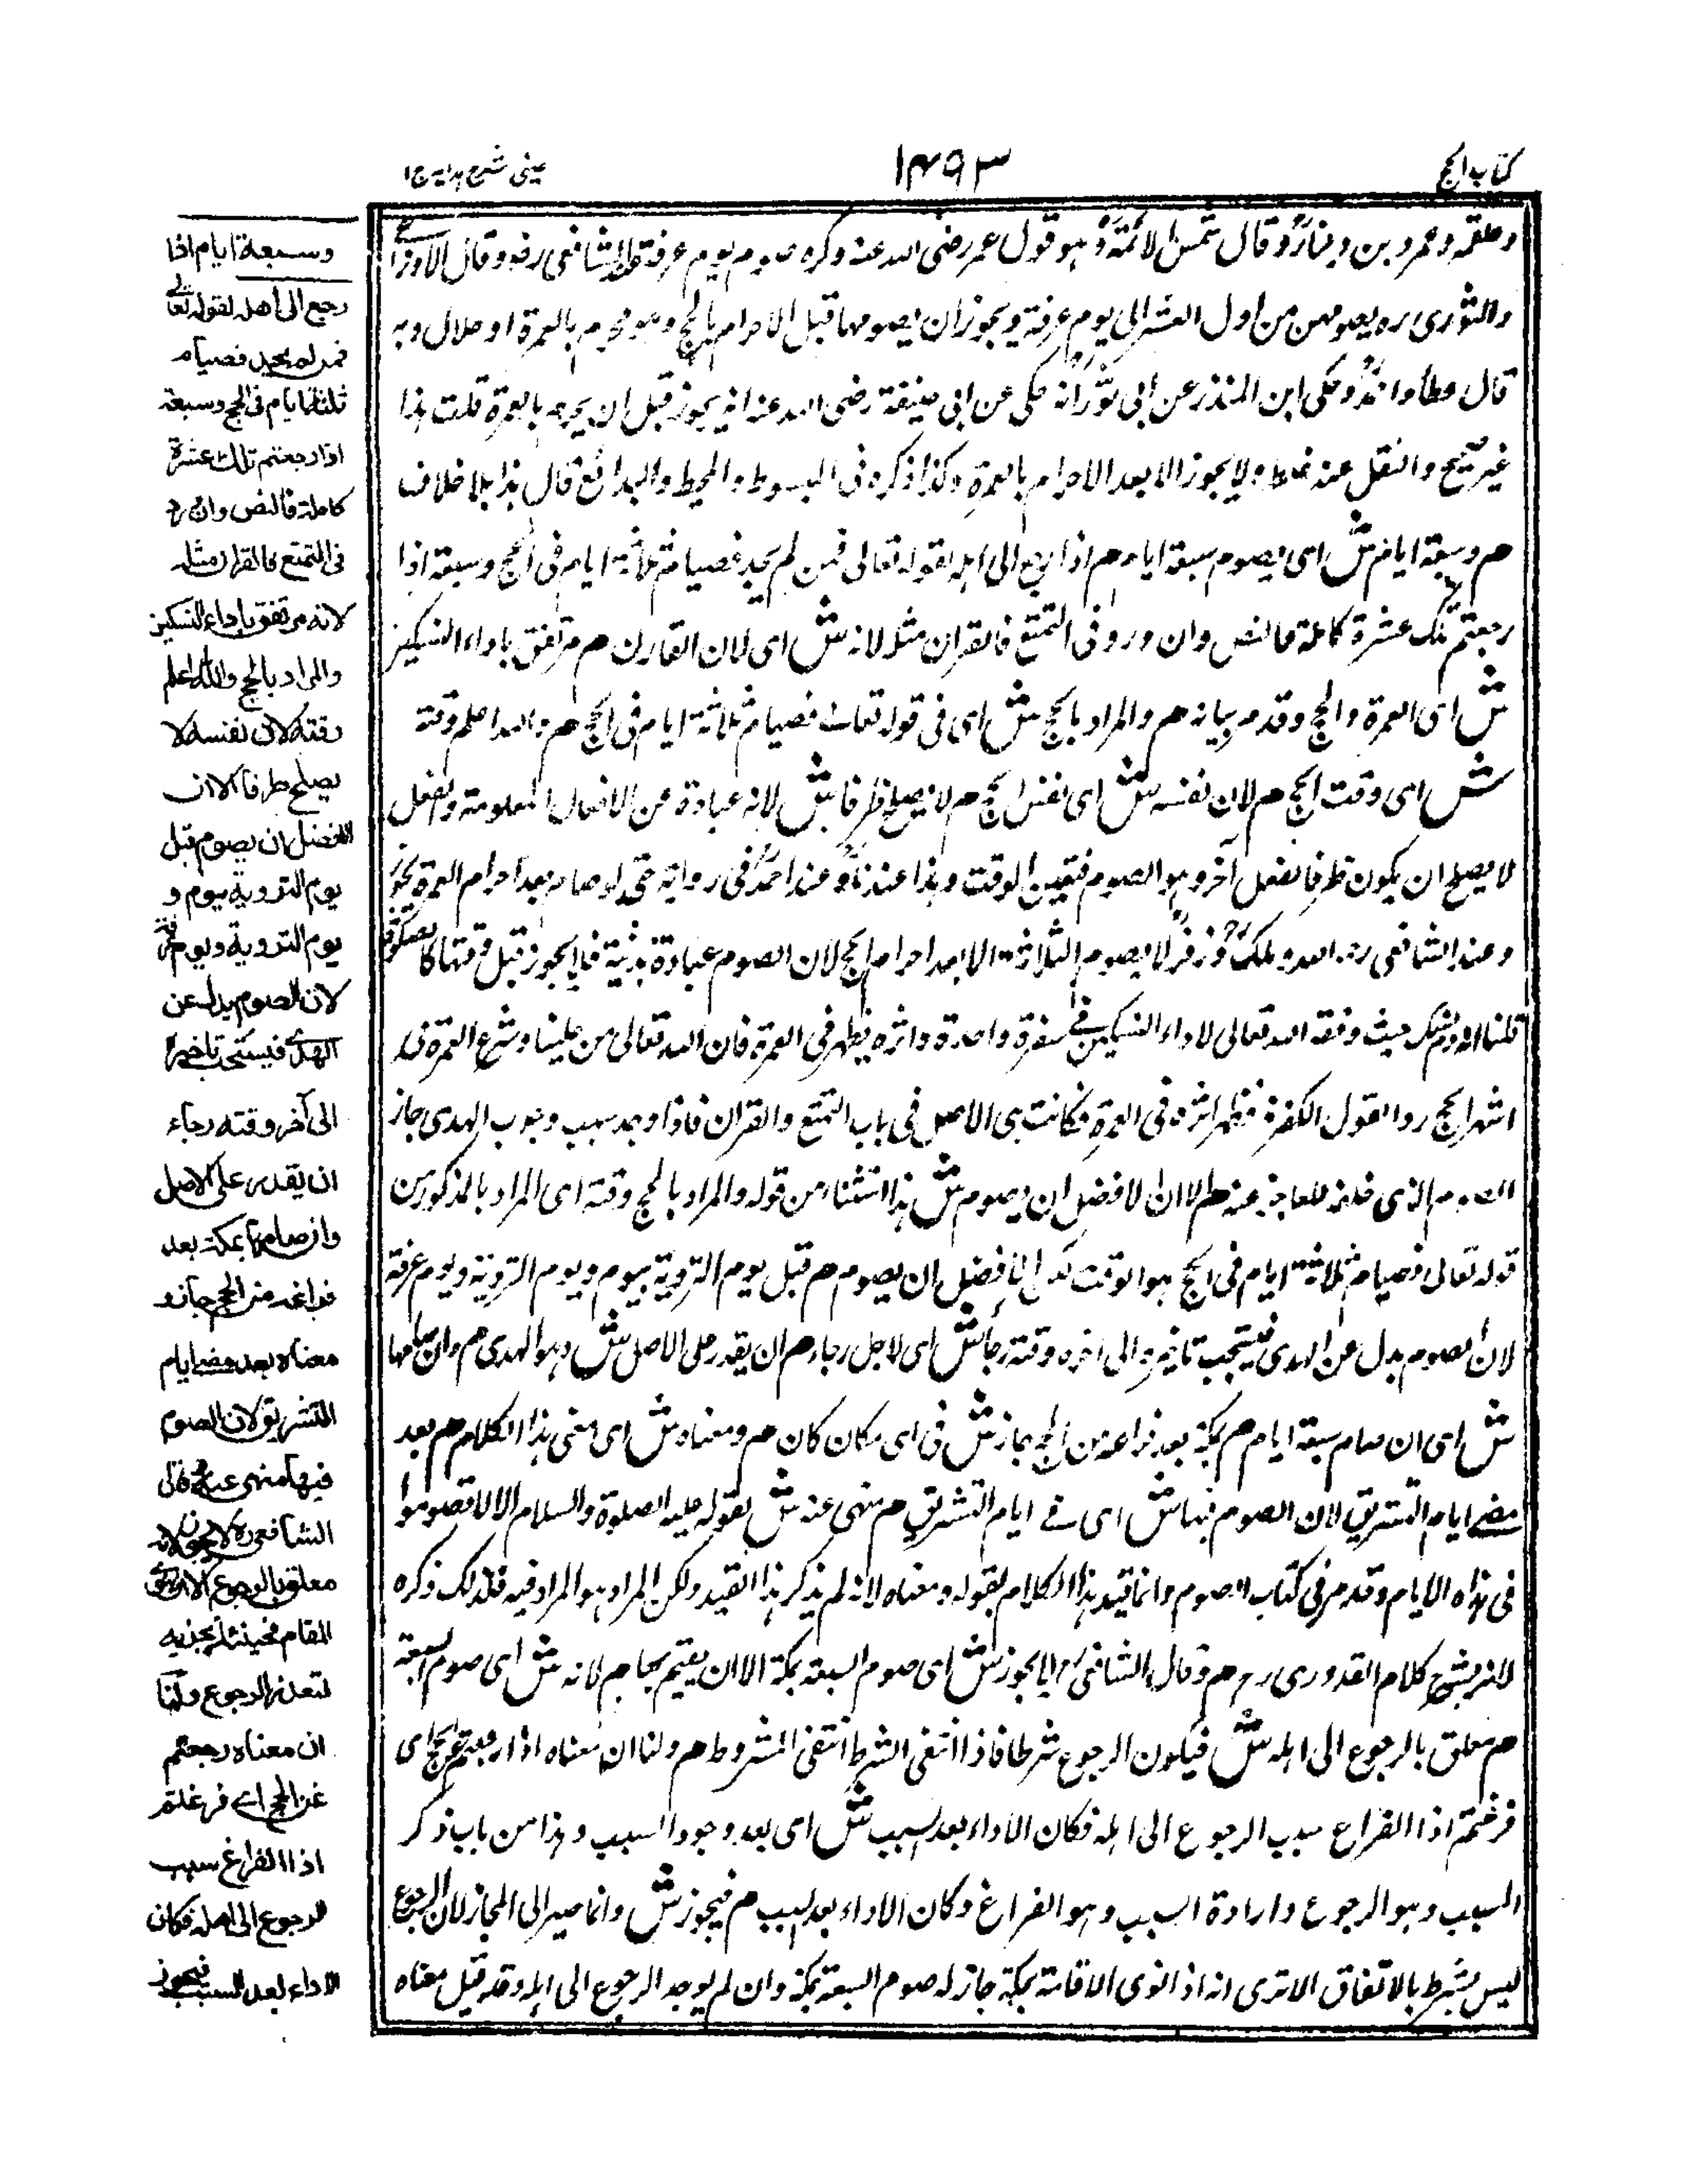 كتاب الحج
١٤٩٣
عينى شرح هدايه ج١
وعلقمة وعمرو بن دينارؒ وقال شمس الائمةؒ وهو قول عمر رضى الله عنه وكره صوم يوم عرفة الشافعى رضه وقال الاوزاعى
والثورى ره يصومهن من اول العشر الى يوم عرفة ويجوز ان يصومها قبل الاحرام بالحج وهو محرم بالعمرة او حلال وبه
قال عطأ واحمدؒ وحكى ابن المنذر عن ابى ثورؒ انه حكى عن ابى حنيفة رضى الله عنه انه يجوز قبل ان يحرم بالعمرة قلت هذا
غير صحيح والنقل عنه غلط ولا يجوز الا بعد الاحرام بالعمرة وكذا ذكره فى المبسوط والمحيط والبدائع قال هذا بلا خلاف
هم وسبعة ايام ش اى يصوم سبعة ايام هم اذا رجع الى اهله لقوله تعالى فمن لم يجد فصيام ثلاثة ايام فى الحج وسبعة اذا
رجعتم تلك عشرة كاملة فالنص وان ورد فى التمتع فالقران مثله لانه ش اى لان القارن هم مرتفق باداء النسكين
ش اى العمرة والحج وقد مر بيانه هم والمراد بالحج ش اى فى قوله تعالى فصيام ثلاثة ايام فى الحج هم والله اعلم وقته
ش اى وقت الحج هم لان نفسه ش اى نفس الحج هم لا يصلح ظرفا ش لانه عبادة عن الافعال المعلومة والفعل
لا يصلح ان يكون ظرفا لفعل آخر وهو الصوم فتعين الوقت وهذا عندنا وعند احمدؒ فى رواية حتى لو صام بعد احرام العمرة يجوز
وعند الشافعى رحمه الله وملكؒ وزفرؒ لا يصوم الثلاثة الا بعد احرام الحج لان الصوم عبادة بدنية فلا يجوز قبل وقتها كالصلوة
قلنا انه دم نسك حيث وفقه الله تعالى لاداء النسكين فى سفرة واحدة واثره يظهر فى العمرة فان الله تعالى من علينا وشرع العمرة فى
اشهر الحج ردا لقول الكفرة فظهر اثره فى العمرة فكانت هى الاصل فى باب التمتع والقران فاذا وجد سبب وجوب الهدى جاز
الصوم الذى خلفه للعاجز عنه هم الا ان الافضل ان يصوم ش هذا استثناء من قوله والمراد بالحج وقته اى المراد بالمذكور من
قوله تعالى فصيام ثلاثة ايام فى الحج هو الوقت لكن الافضل ان يصوم هم قبل يوم التروية بيوم ويوم التروية ويوم عرفة
لان الصوم بدل عن الهدى فيستحب تاخيره الى اخره وقته رجاء ش اى لاجل رجاء هم ان يقدر على الاصل ش وهو الهدى هم وان صامها
ش اى ان صام سبعة ايام هم بمكة بعد فراغه من الحج جاز ش فى اى مكان كان هم ومعناه ش اى معنى هذا الكلام هم بعد
مضى ايام التشريق لان الصوم فيها ش اى فى ايام التشريق هم منهى عنه ش لقوله عليه الصلوة والسلام الا لا تصوموا
فى هذه الايام وقد مر فى كتاب الصوم وانما قيد هذا الكلام بقوله ومعناه لانه لم يذكر هذا القيد ولكن المراد هو المراد فيه فلذلك ذكره
لانه يشرح كلام القدورى رح هم وقال الشافعىؒ لا يجوز ش اى صوم السبعة بمكة الا ان يقيم بها هم لانه ش اى صوم السبعة
هم معلق بالرجوع الى اهله ش فيكون الرجوع شرطا فاذا انتفى الشرط انتفى المشروط هم ولنا ان معناه اذا رجعتم عن الحج اى
فرغتم اذ الفراغ سبب الرجوع الى اهله فكان الاداء بعد السبب ش اى بعد وجود السبب وهذا من باب ذكر
المسبب وهو الرجوع وارادة السبب وهو الفراغ وكان الاداء بعد السبب هم فيجوز ش وانما صير الى المجاز لان الرجوع
ليس بشرط بالاتفاق الا ترى انه اذا نوى الاقامة بمكة جاز له صوم السبعة بمكة وان لم يوجد الرجوع الى اهله وقد قيل معناه
وسبعة ايام اذا
رجع الى أهله لقوله تعالى
فمن لم يجد فصيام
ثلثة ايام فى الحج وسبعة
اذا رجعتم تلك عشرة
كاملة فالنص وان ورد
فى التمتع فالقران مثله
لانه مرتفق باداء النسكين
والمراد بالحج والله اعلم
وقته لان نفسه لا
يصلح ظرفا الا ان
الافضل ان يصوم قبل
يوم التروية بيوم و
يوم التروية ويوم عرفة
لان الصوم بدل عن
الهدى فيستحب تاخيره
الى آخر وقته رجاء
ان يقدر على الاصل
وان صامها بمكة بعد
فراغه من الحج جاز و
معناه بعد مضى ايام
التشريق لان الصوم
فيها منهى عنه وقال
الشافعى ره لا يجوز لانه
معلق بالرجوع الا ان ينوى
المقام فحينئذ يجزيه
لتعذر الرجوع ولنا
ان معناه رجعتم
عن الحج اى فرغتم
اذ الفراغ سبب
الرجوع الى اهله فكان
الاداء بعد السبب فيجوز